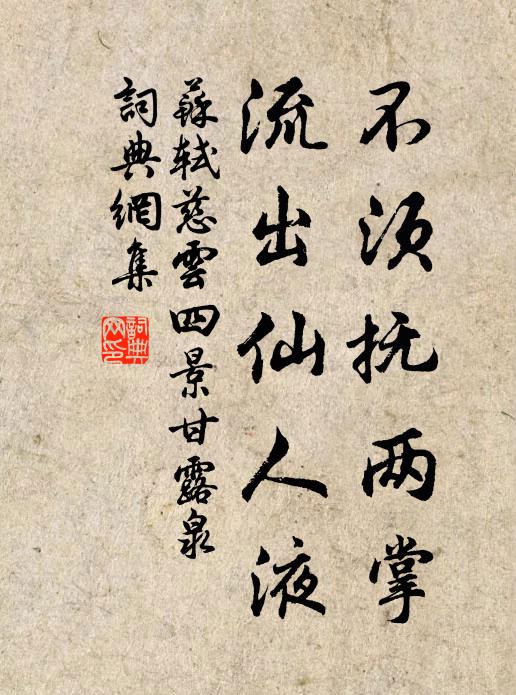 不须抚两掌
流出仙人液
蘇軾慈雲四景甘露泉
詞典網集
詞典網印